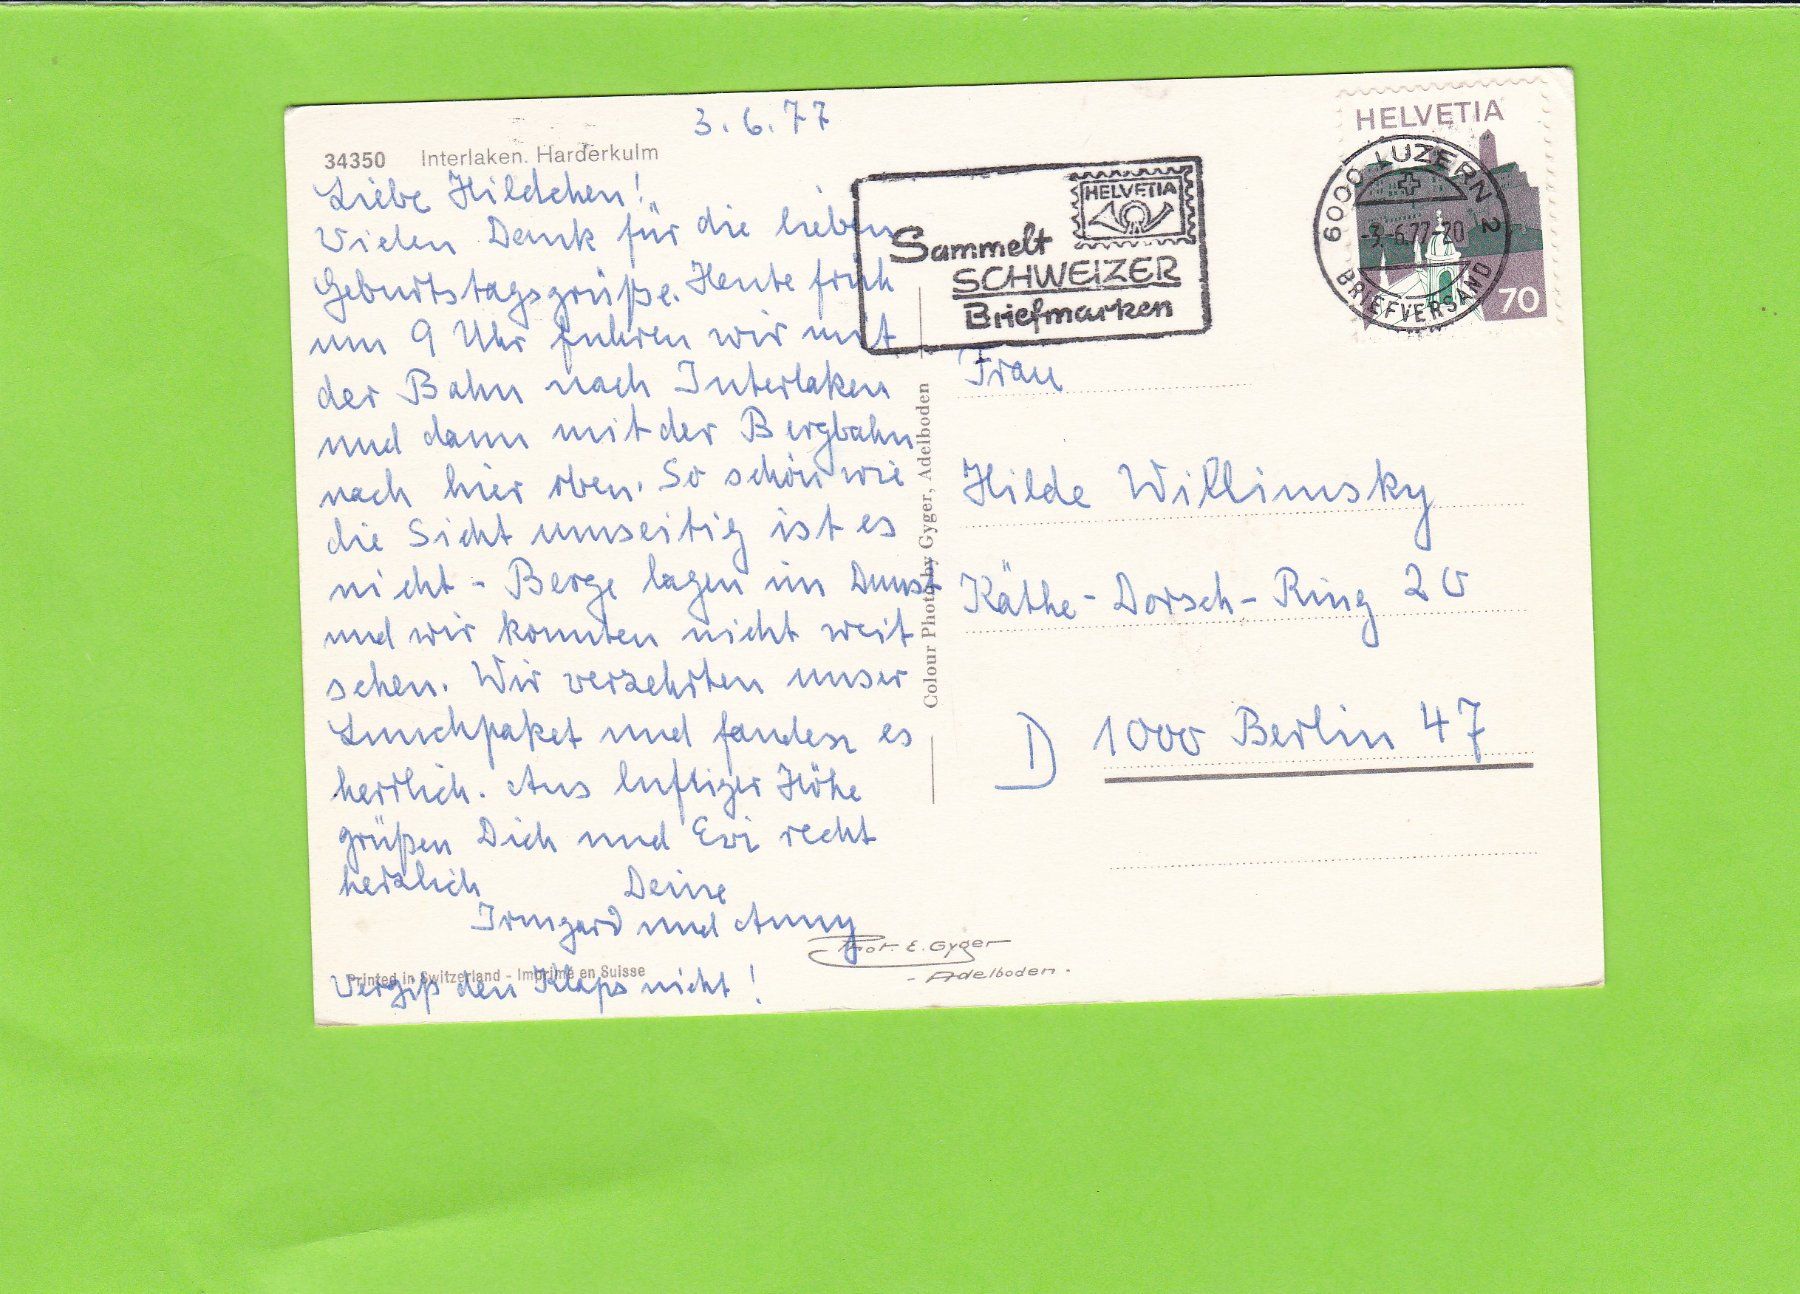 3.6.77
34350 Interlaken. Harderkulm
Liebe Hildchen!
Vielen Dank für die lieben
Geburtstagsgrüße. Heute früh
um 9 Uhr fuhren wir mit
der Bahn nach Interlaken
und dann mit der Bergbahn
nach hier oben. So schön wie
die Sicht umseitig ist es
nicht - Berge lagen im Dunst
und wir konnten nicht weit
sehen. Wir verzehrten unser
Lunchpaket und fanden es
herrlich. Aus luftiger Höhe
grüßen Dich und Evi recht
herzlich Deine
Irmgard und Anny
Vergiß den Klaps nicht!
Printed in Switzerland - Imprimé en Suisse
Phot. E. Gyger
- Adelboden -
Colour Photo by Gyger, Adelboden
HELVETIA
Sammelt
SCHWEIZER
Briefmarken
HELVETIA
70
6000 LUZERN 2
-3.-6.77-20
BRIEFVERSAND
Frau
Hilde Willimsky
Käthe-Dorsch-Ring 20
D 1000 Berlin 47